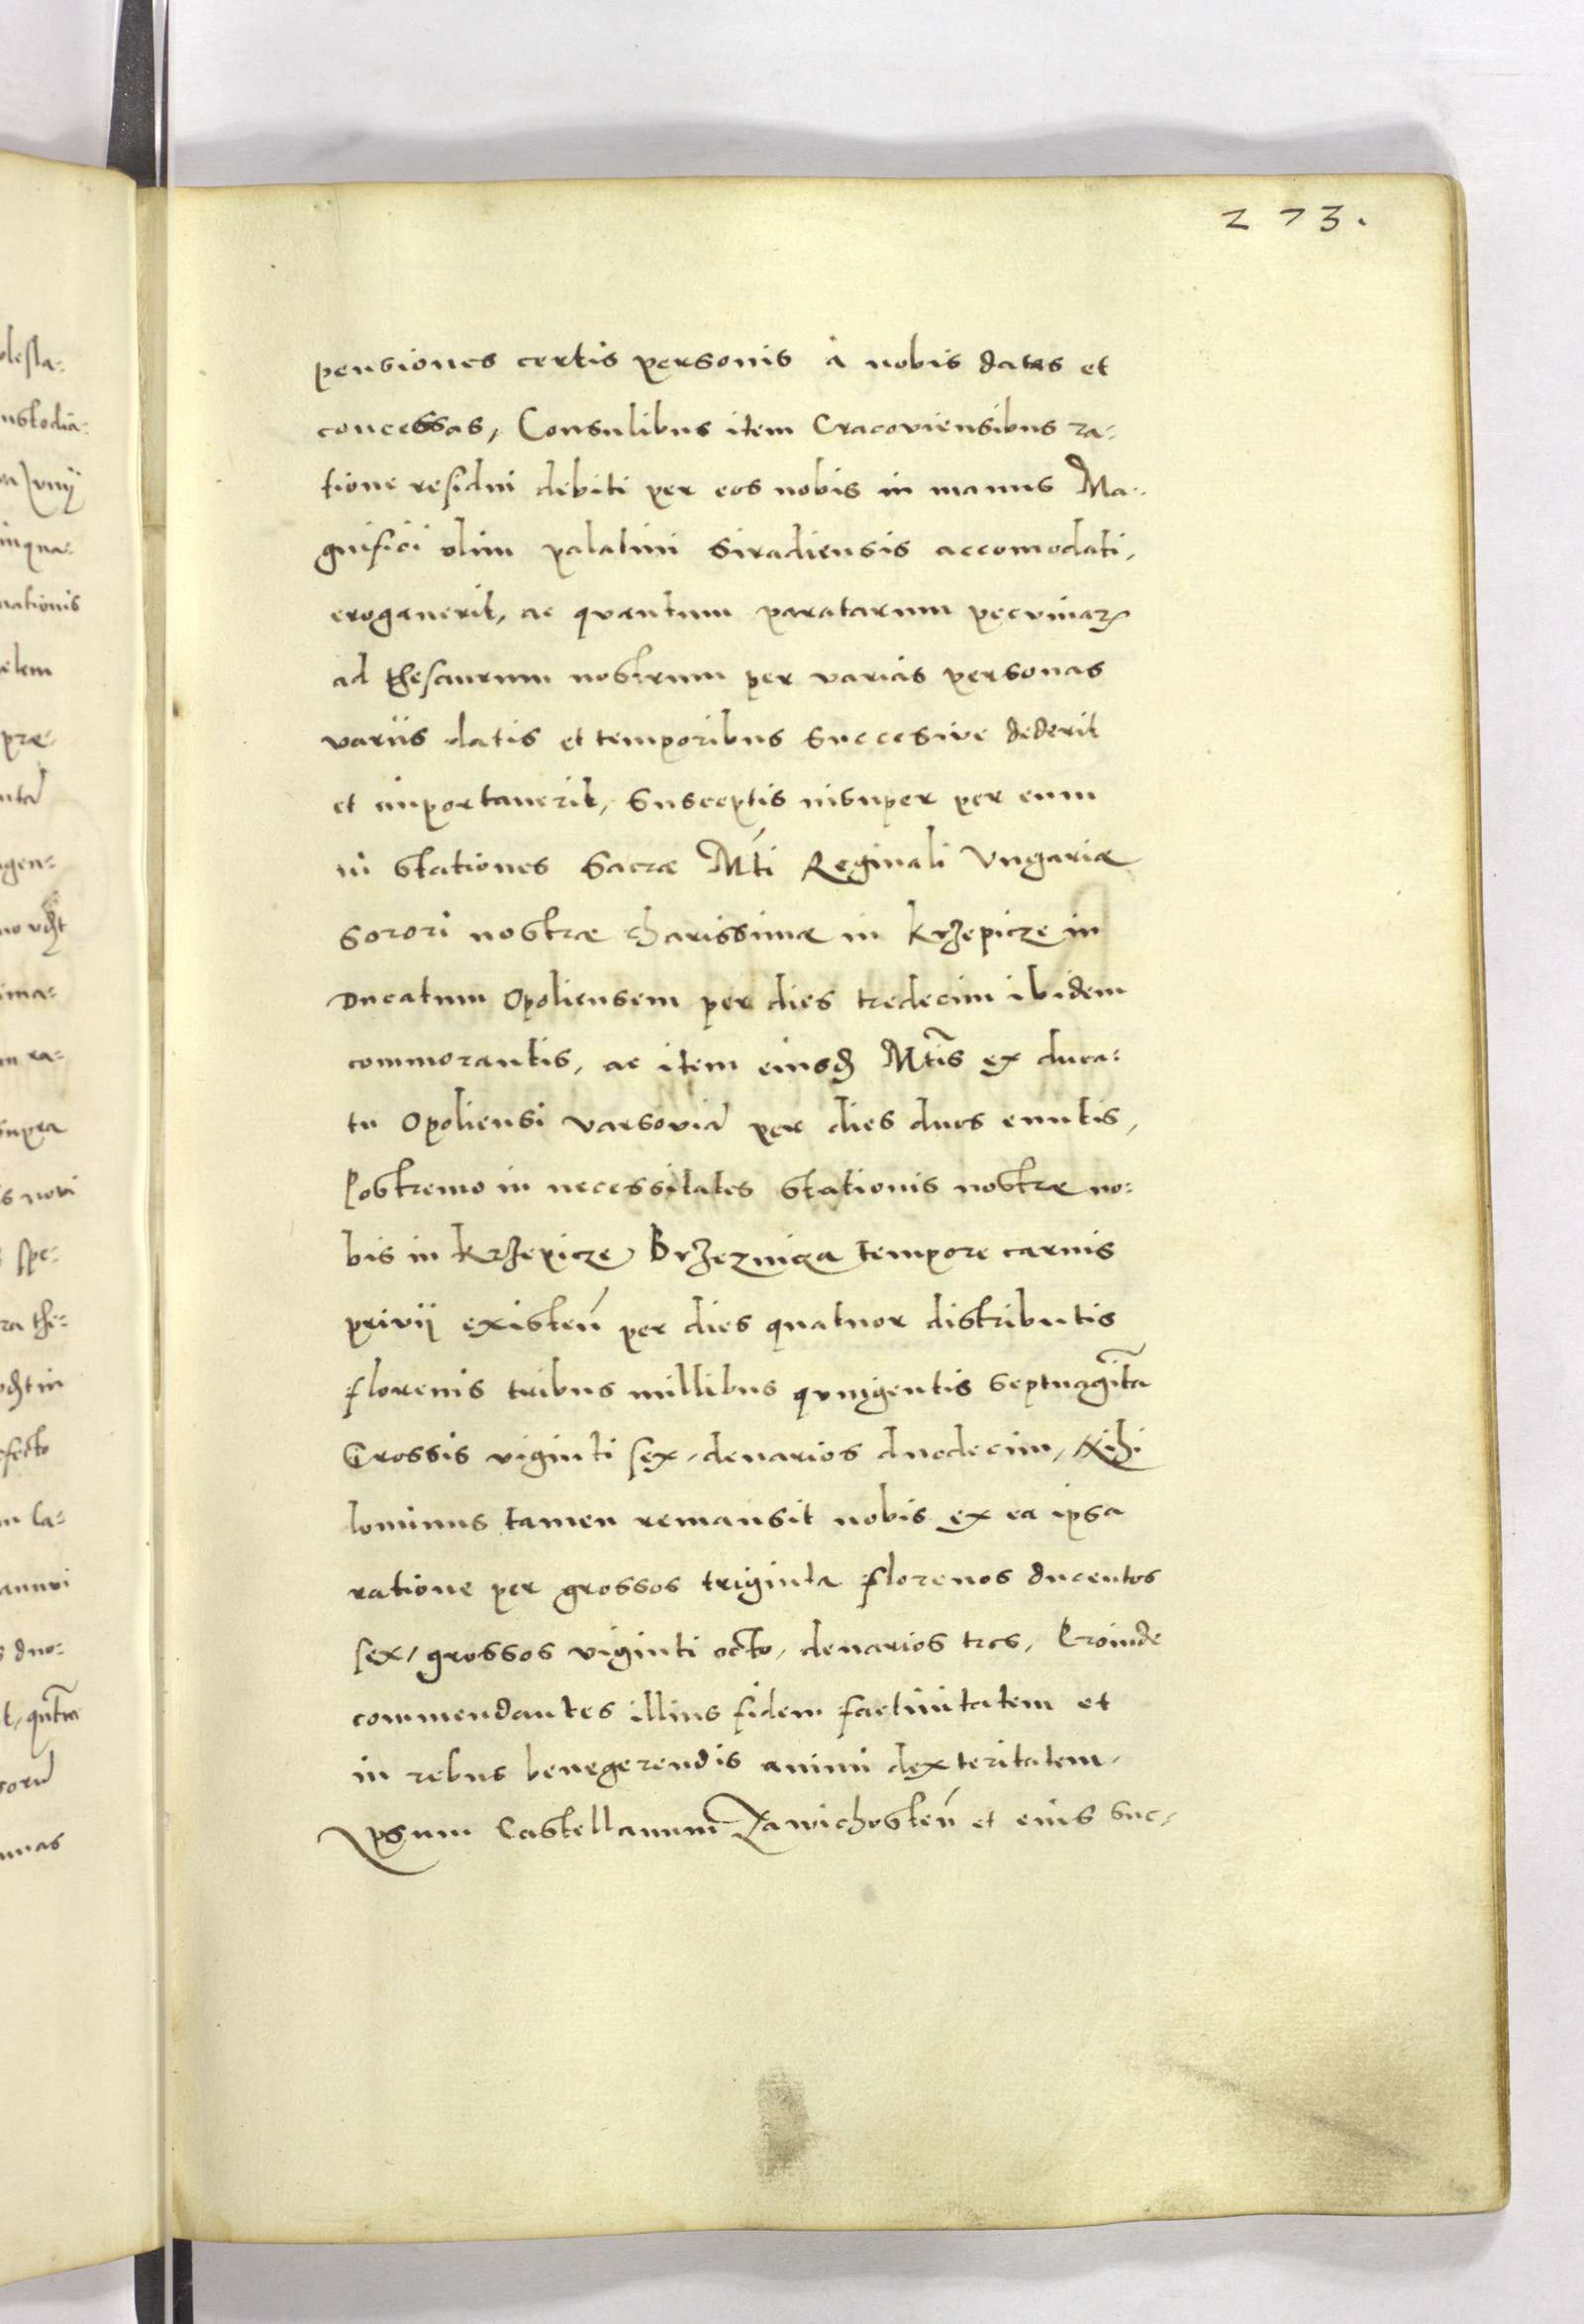 273.
pensiones certis personis à nobis datas et
concessas, Consulibus item Cracoviensibus ra-
tione residui debiti per eos nobis in manus Ma-
gnifici olim palatini Siradiensis accomodati,
erogaverit, ac quantum paratarum pecuniarꝝ
ad thesaurum nostrum per varias personas
variis datis et temporibus Succesive dederit
et importaverit, Susceptis insuper per eum
in Stationes Sacræ Mti Reginali Vngariæ
Sorori nostræ charissimæ in Krzepicze in
Ducatum Opoliensem per dies tredecim ibidem
commorantis, ac item eiusd Mtis ex duca-
tu Opoliensi varsoviā per dies duos euntis,
Postremo in necessitates Stationis nostræ no-
bis in Krzepicze Brzeznicza tempore carnis
privij existeñ per dies quatuor distributis
florenis tribus millibus quingentis Septuagīta
Grossis viginti sex, denarios duodecim, Nihi
lominus tamen remansit nobis ex ea ipsa
ratione per grossos triginta florenos ducentos
sex, grossos viginti octo, denarios tres, Proinde
commendantes illius fidem factivitatem et
in rebus benegerendis animi dexteritatem,
Ipsum Castellanum Zawichosteñ et eius Suc-